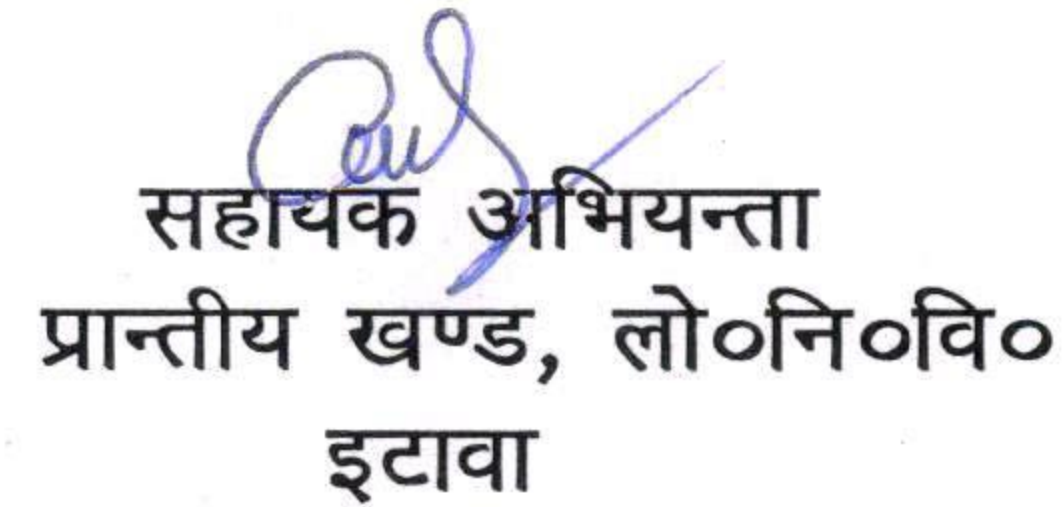 सहायक अभियन्ता
प्रान्तीय खण्ड, लो०नि०वि०
इटावा